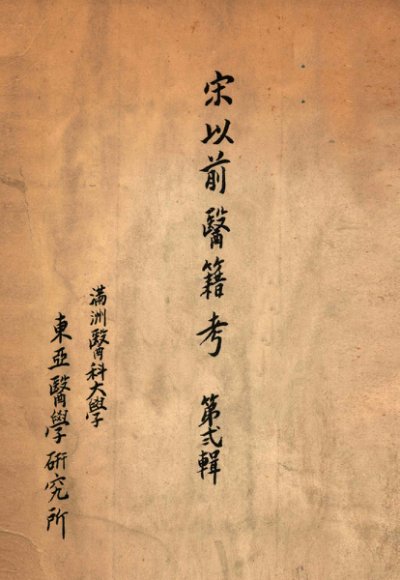 宋以前醫籍考 第弍輯
滿洲醫科大學
東亞醫學硏究所